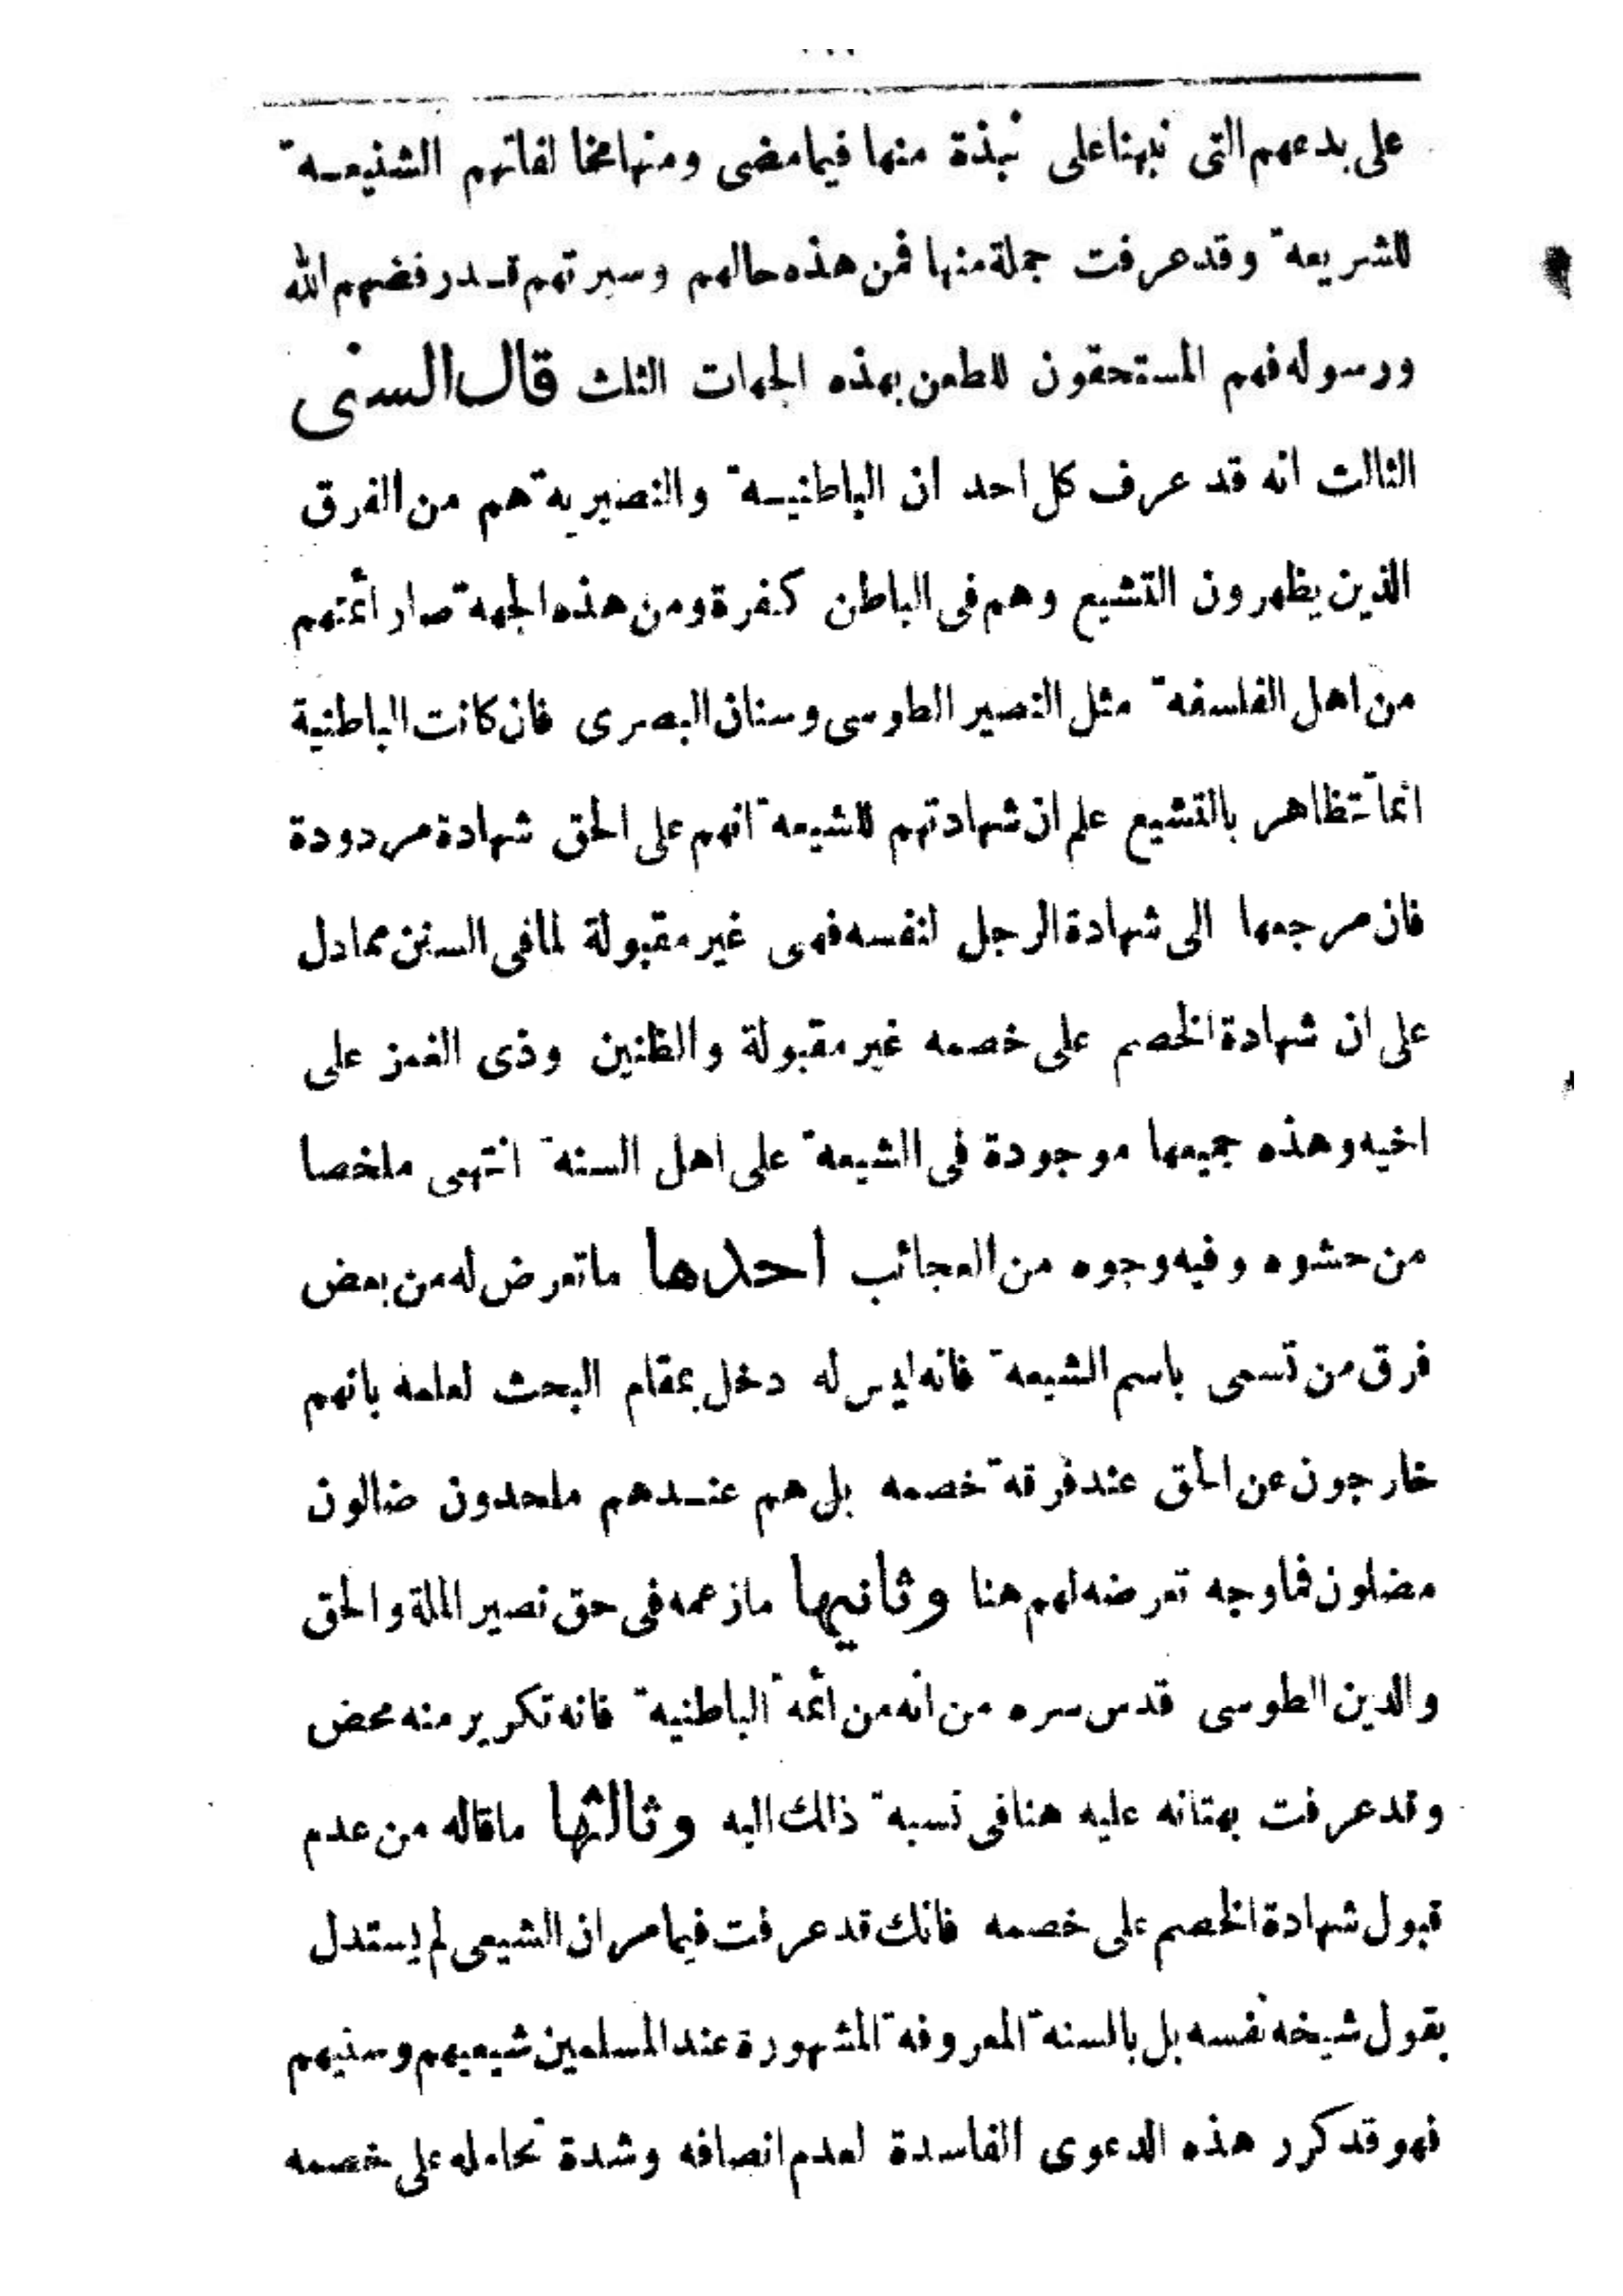 على بدعهم التى نبهنا على نبذة منها فيما مضى ومنها مخالفاتهم الشنيعة
للشريعة وقد عرفت جملة منها فمن هذه حالهم وسيرتهم قد رفضهم الله
ورسوله فهم المستحقون للطعن بهذه الجهات الثلث قال السنى
الثالث انه قد عرف كل احد ان الباطنية والنصيرية هم من الفرق
الذين يظهرون التشيع وهم فى الباطن كفرة ومن هذه الجهة صار أئمتهم
من اهل الفلسفة مثل النصير الطوسى وسنان البصرى فان كانت الباطنية
انما تتظاهر بالتشيع علم ان شهادتهم للشيعة انهم على الحق شهادة مردودة
فان مرجعها الى شهادة الرجل لنفسه فهى غير مقبولة لما فى السنن مما دل
على ان شهادة الخصم على خصمه غير مقبولة والظنين وذى الغمز على
اخيه وهذه جميعها موجودة فى الشيعة على اهل السنة انتهى ملخصا
من حشوه وفيه وجوه من العجائب احدها ما تعرض له من بعض
فرق من تسمى باسم الشيعة فانه ليس له دخل بمقام البحث لعلمه بانهم
خارجون عن الحق عند فرقة خصمه بل هم عندهم ملحدون ضالون
مضلون فما وجه تعرضه لهم هنا وثانيها ما زعمه فى حق نصير الملة والحق
والدين الطوسى قدس سره من انه من أئمة الباطنية فانه تكرير منه محض
وقد عرفت بهتانه عليه هنا فى نسبة ذالك اليه وثالثها ما قاله من عدم
قبول شهادة الخصم على خصمه فانك قد عرفت فيما مر ان الشيعى لم يستدل
بقول شيخه نفسه بل بالسنة المعروفة المشهورة عند المسلمين شيعيهم وسنيهم
فهو قد كرر هذه الدعوى الفاسدة لعدم انصافه وشدة تحامله على خصمه